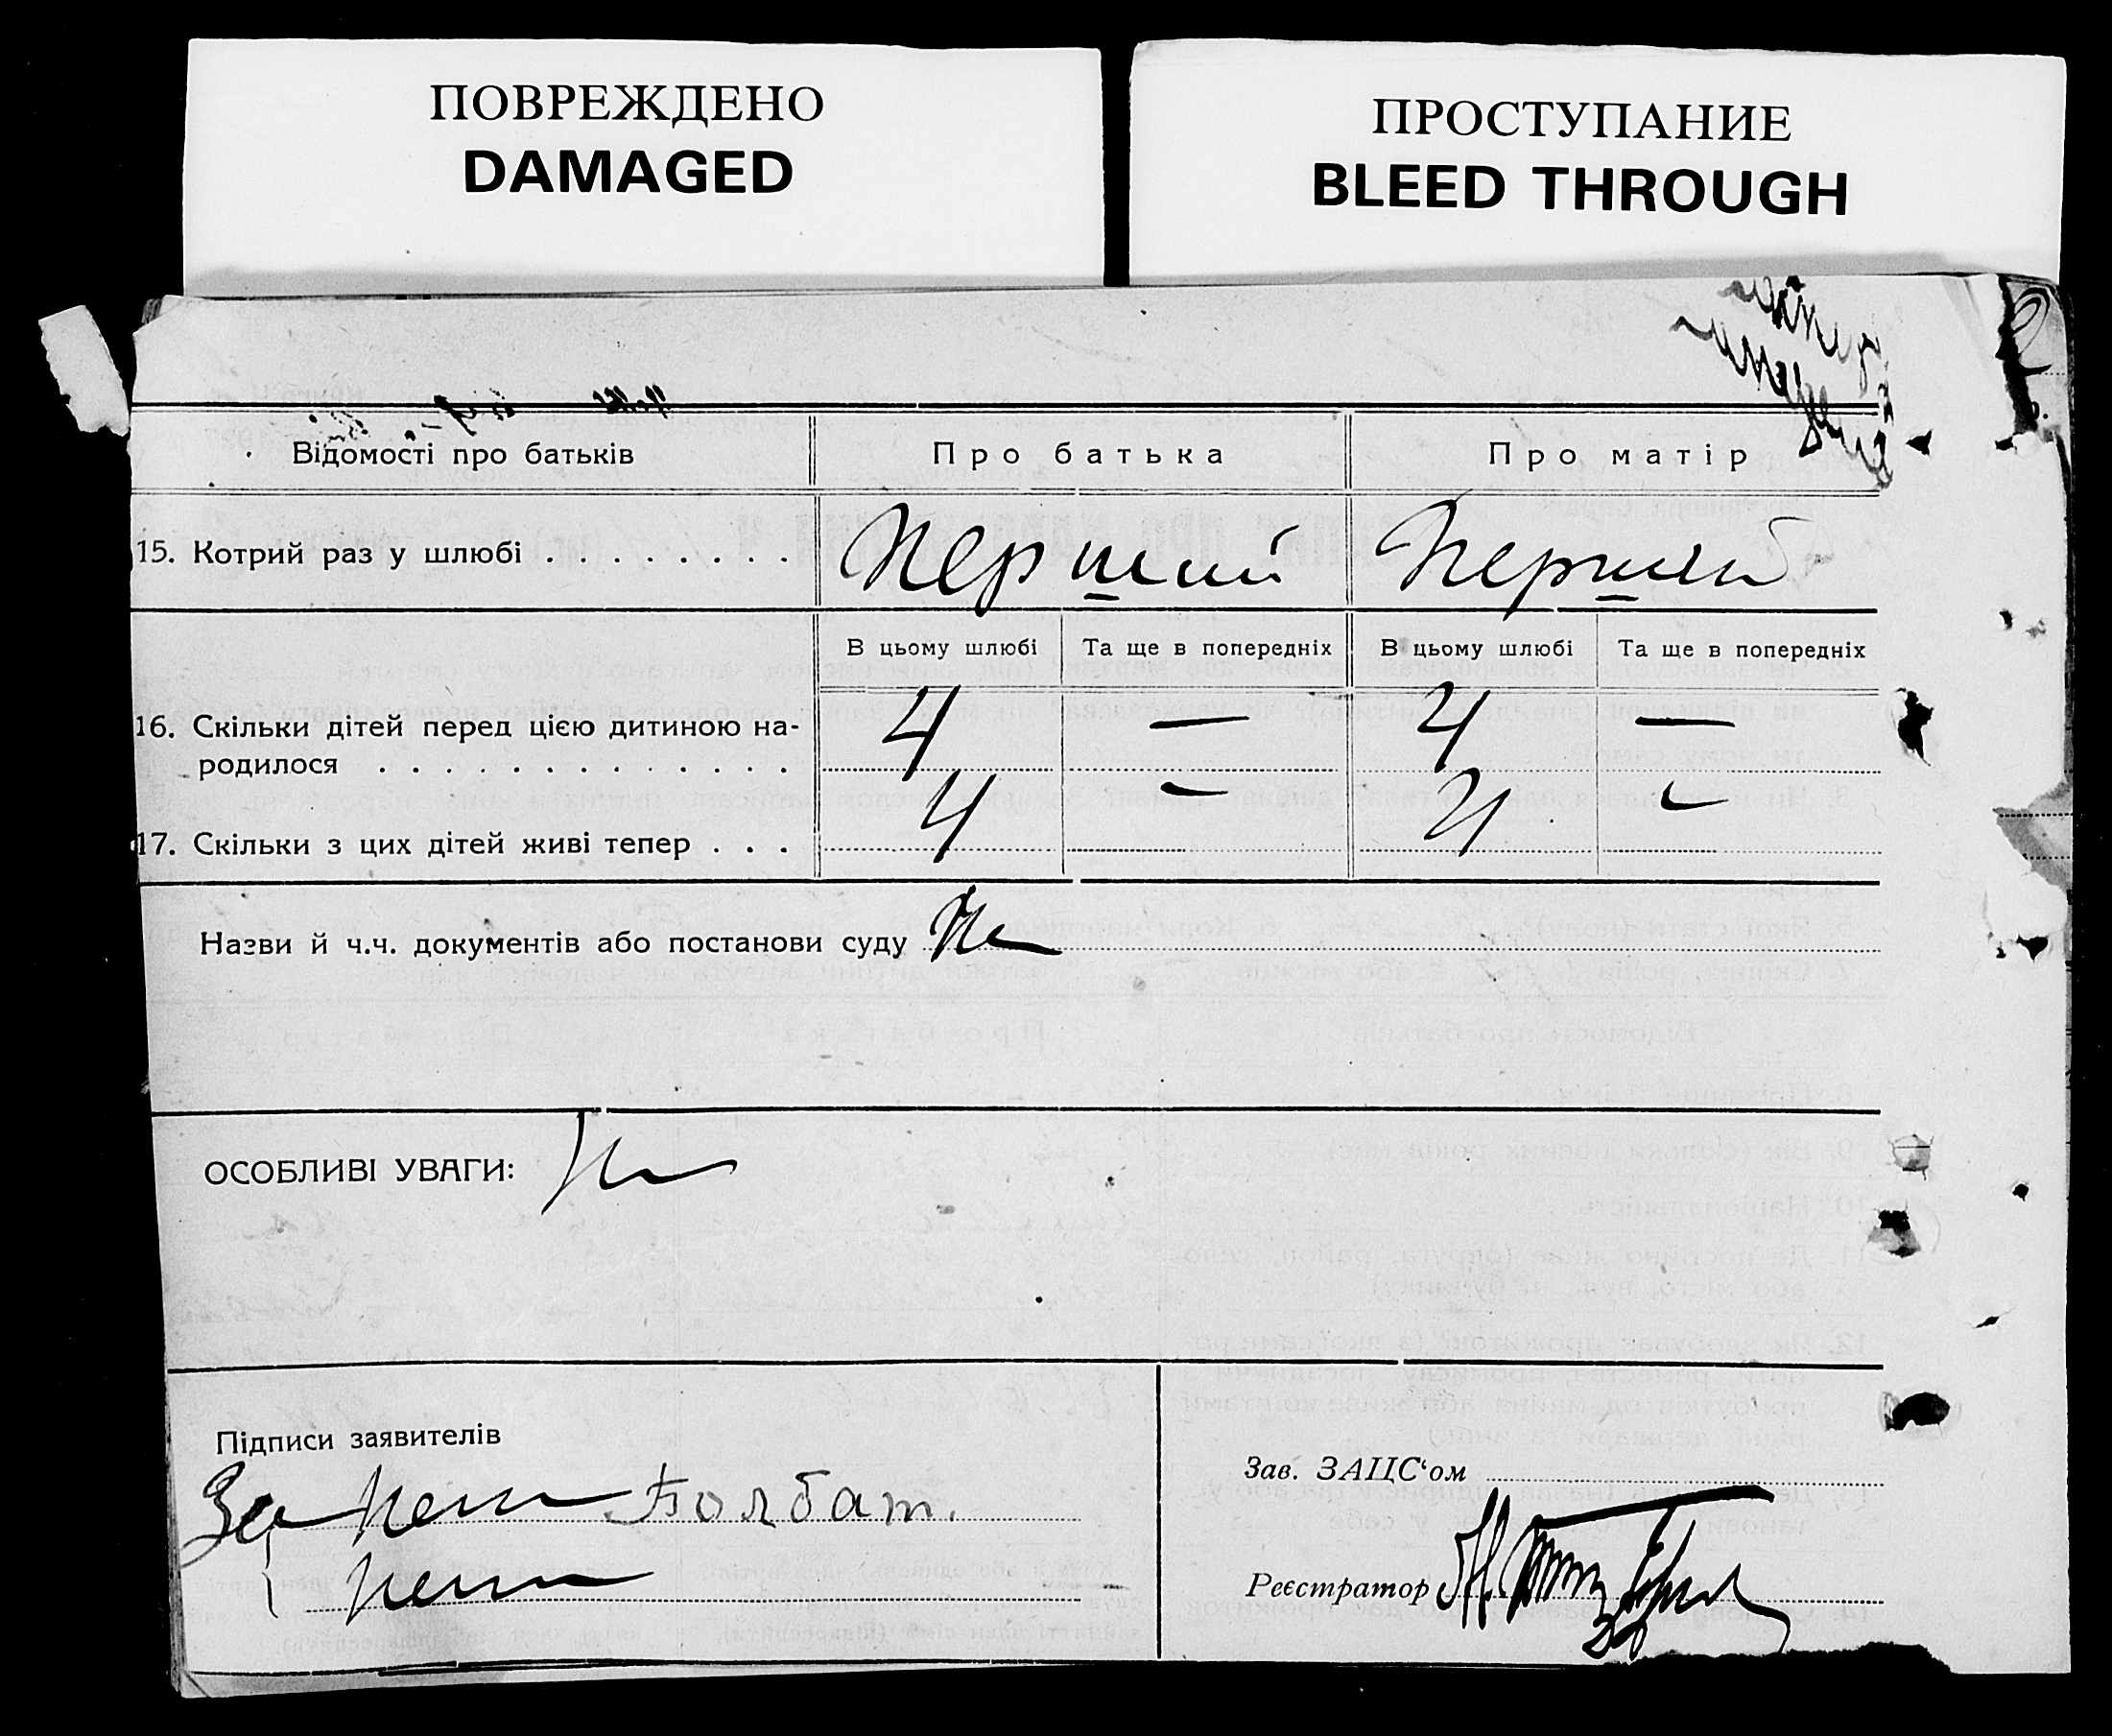 ПОВРЕЖДЕНО
DAMAGED
ПРОСТУПАНИЕ
BLEED THROUGH
Відомості про батьків
Про батька
Про матір
15. Котрий раз у шлюбі . . . . . . . .
Перший
Перший
В цьому шлюбі
Та ще в попередніх
В цьому шлюбі
Та ще в попередніх
16. Скільки дітей перед цією дитиною на-
родилося . . . . . . . . . . . . .
4 — 4 —
17. Скільки з цих дітей живі тепер . . .
4 — 4 —
Назви й ч.ч. документів або постанови суду
ОСОБЛИВІ УВАГИ:
Підписи заявителів
За Болбат.
Зав. ЗАЦС‘ом
Реєстратор